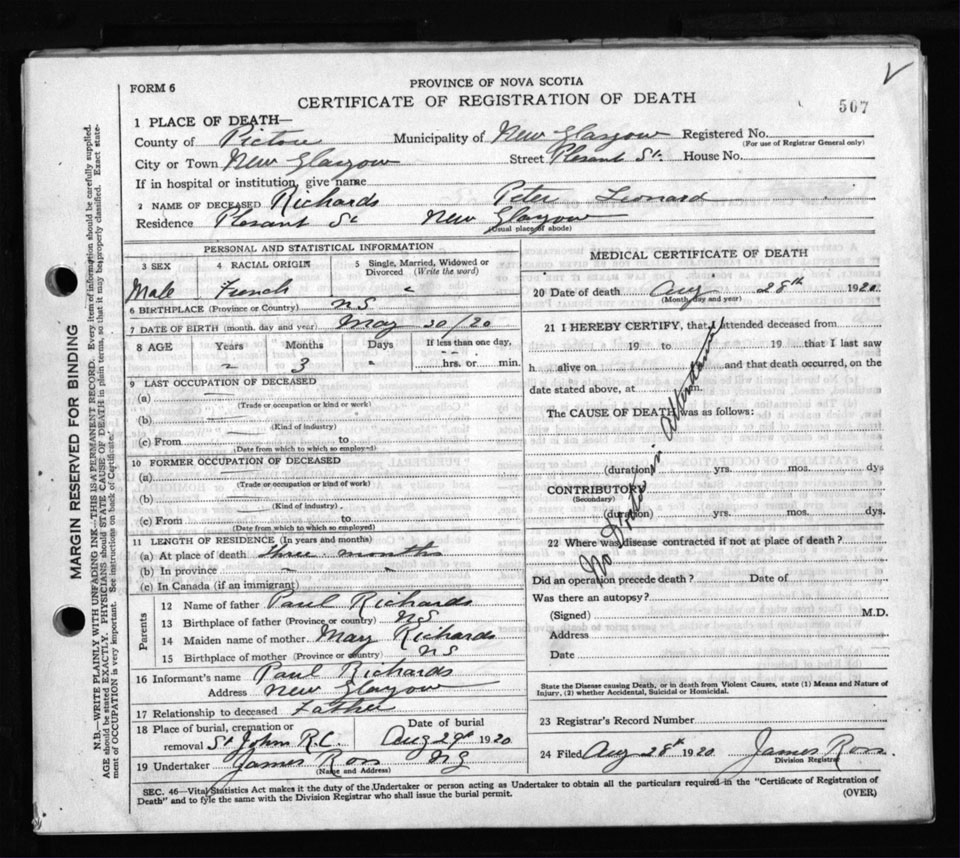 FORM 6
PROVINCE OF NOVA SCOTIA
CERTIFICATE OF REGISTRATION OF DEATH
507
1 PLACE OF DEATH—
County of Pictou Municipality of New Glasgow Registered No.
(For use of Registrar General only)
City or Town New Glasgow Street Plesant St. House No.
If in hospital or institution, give name
2 NAME OF DECEASED Richards Peter Leonard
Residence Plesant St New Glasgow
(Usual place of abode)
PERSONAL AND STATISTICAL INFORMATION
3 SEX 4 RACIAL ORIGIN 5 Single, Married, Widowed or Divorced (Write the word)
Male French
6 BIRTHPLACE (Province or Country) NS
7 DATE OF BIRTH (month, day and year) May 20/20
8 AGE Years Months Days If less than one day,
3 hrs. or min.
9 LAST OCCUPATION OF DECEASED
(a)
(Trade or occupation or kind or work)
(b)
(Kind of industry)
(c) From to
(Date from which to which so employed)
10 FORMER OCCUPATION OF DECEASED
(a)
(Trade or occupation or kind of work)
(b)
(Kind of industry)
(c) From to
(Date from which to which so employed)
11 LENGTH OF RESIDENCE (In years and months)
(a) At place of death three months
(b) In province
(c) In Canada (if an immigrant)
Parents
12 Name of father Paul Richards
13 Birthplace of father (Province or country) NS
14 Maiden name of mother May Richards
15 Birthplace of mother (Province or country) NS
16 Informant's name Paul Richards
Address New Glasgow
17 Relationship to deceased Father
18 Place of burial, cremation or removal St John R.C. Date of burial Aug 29th 1920
19 Undertaker James Ross NG
(Name and Address)
MEDICAL CERTIFICATE OF DEATH
20 Date of death Aug 28th 1920
(Month, day and year)
21 I HEREBY CERTIFY, that I attended deceased from
19 to 19 that I last saw
h alive on and that death occurred, on the
date stated above, at m.
The CAUSE OF DEATH was as follows:
No Doctor in Attendance
(duration) yrs. mos. dys
CONTRIBUTORY
(Secondary)
(duration) yrs. mos. dys.
22 Where was disease contracted if not at place of death?
Did an operation precede death? Date of
Was there an autopsy?
(Signed) M.D.
Address
Date
State the Disease causing Death, or in death from Violent Causes, state (1) Means and Nature of
Injury, (2) whether Accidental, Suicidal or Homicidal.
23 Registrar's Record Number
24 Filed Aug 28th 1920 James Ross
Division Registrar
SEC. 46—Vital Statistics Act makes it the duty of the Undertaker or person acting as Undertaker to obtain all the particulars required in the "Certificate of Registration of
Death" and to fyle the same with the Division Registrar who shall issue the burial permit.
(OVER)
MARGIN RESERVED FOR BINDING
N.B.—WRITE PLAINLY WITH UNFADING INK—THIS IS A PERMANENT RECORD. Every item of information should be carefully supplied.
AGE should be stated EXACTLY. PHYSICIANS should STATE CAUSE OF DEATH in plain terms, so that it may be properly classified. Exact state-
ment of OCCUPATION is very important. See instructions on back of Certificate.